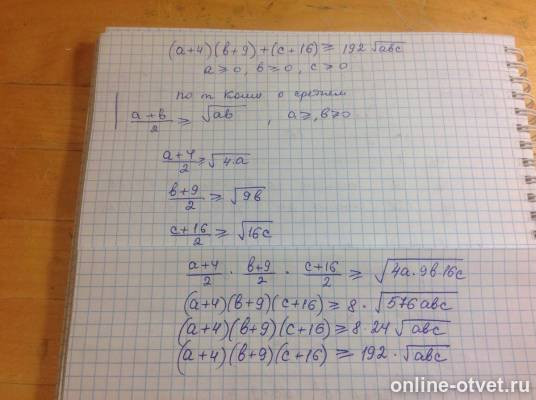 (a+4)(b+9)+(c+16) ≥ 192√abc
a≥0, b≥0, c≥0
по т Коши о среднем
(a+b)/2 ≥ √ab , a≥, b≥0
(a+4)/2 ≥ √4·a
(b+9)/2 ≥ √9b
(c+16)/2 ≥ √16c
(a+4)/2 · (b+9)/2 · (c+16)/2 ≥ √4a·9b·16c
(a+4)(b+9)(c+16) ≥ 8·√576abc
(a+4)(b+9)(c+16) ≥ 8·24√abc
(a+4)(b+9)(c+16) ≥ 192·√abc
online-otvet.ru